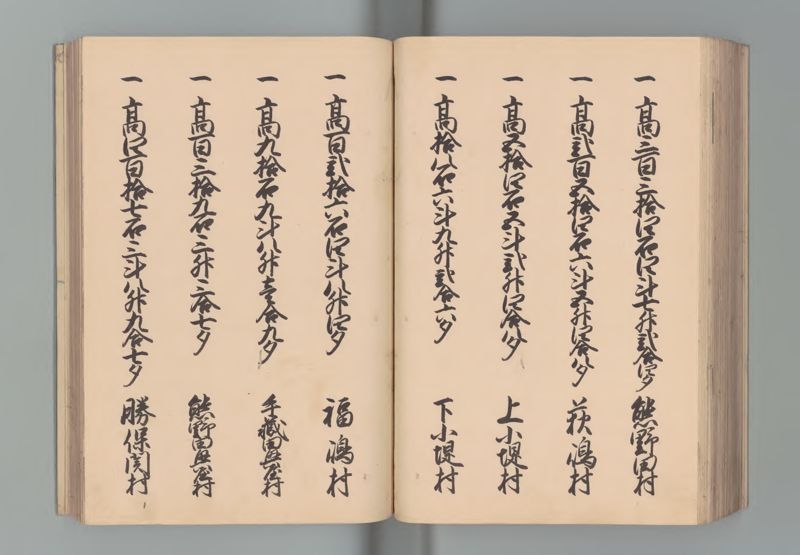 一 高三百三拾四石四斗七升弐合四夕 熊野田村
一 高弐百五拾四石六斗五升四合八夕 荻嶋村
一 高五拾四石五斗弐升四合八夕 上小堤村
一 高拾八石六斗九升弐合六夕 下小堤村
一 高百弐拾六石四斗八升四夕 福嶋村
一 高九拾石九斗八升壱合九夕 手蔵田興屋村
一 高百三拾九石三升三合七夕 熊野田興屋村
一 高四百拾七石三斗八升九合七夕 勝保関村